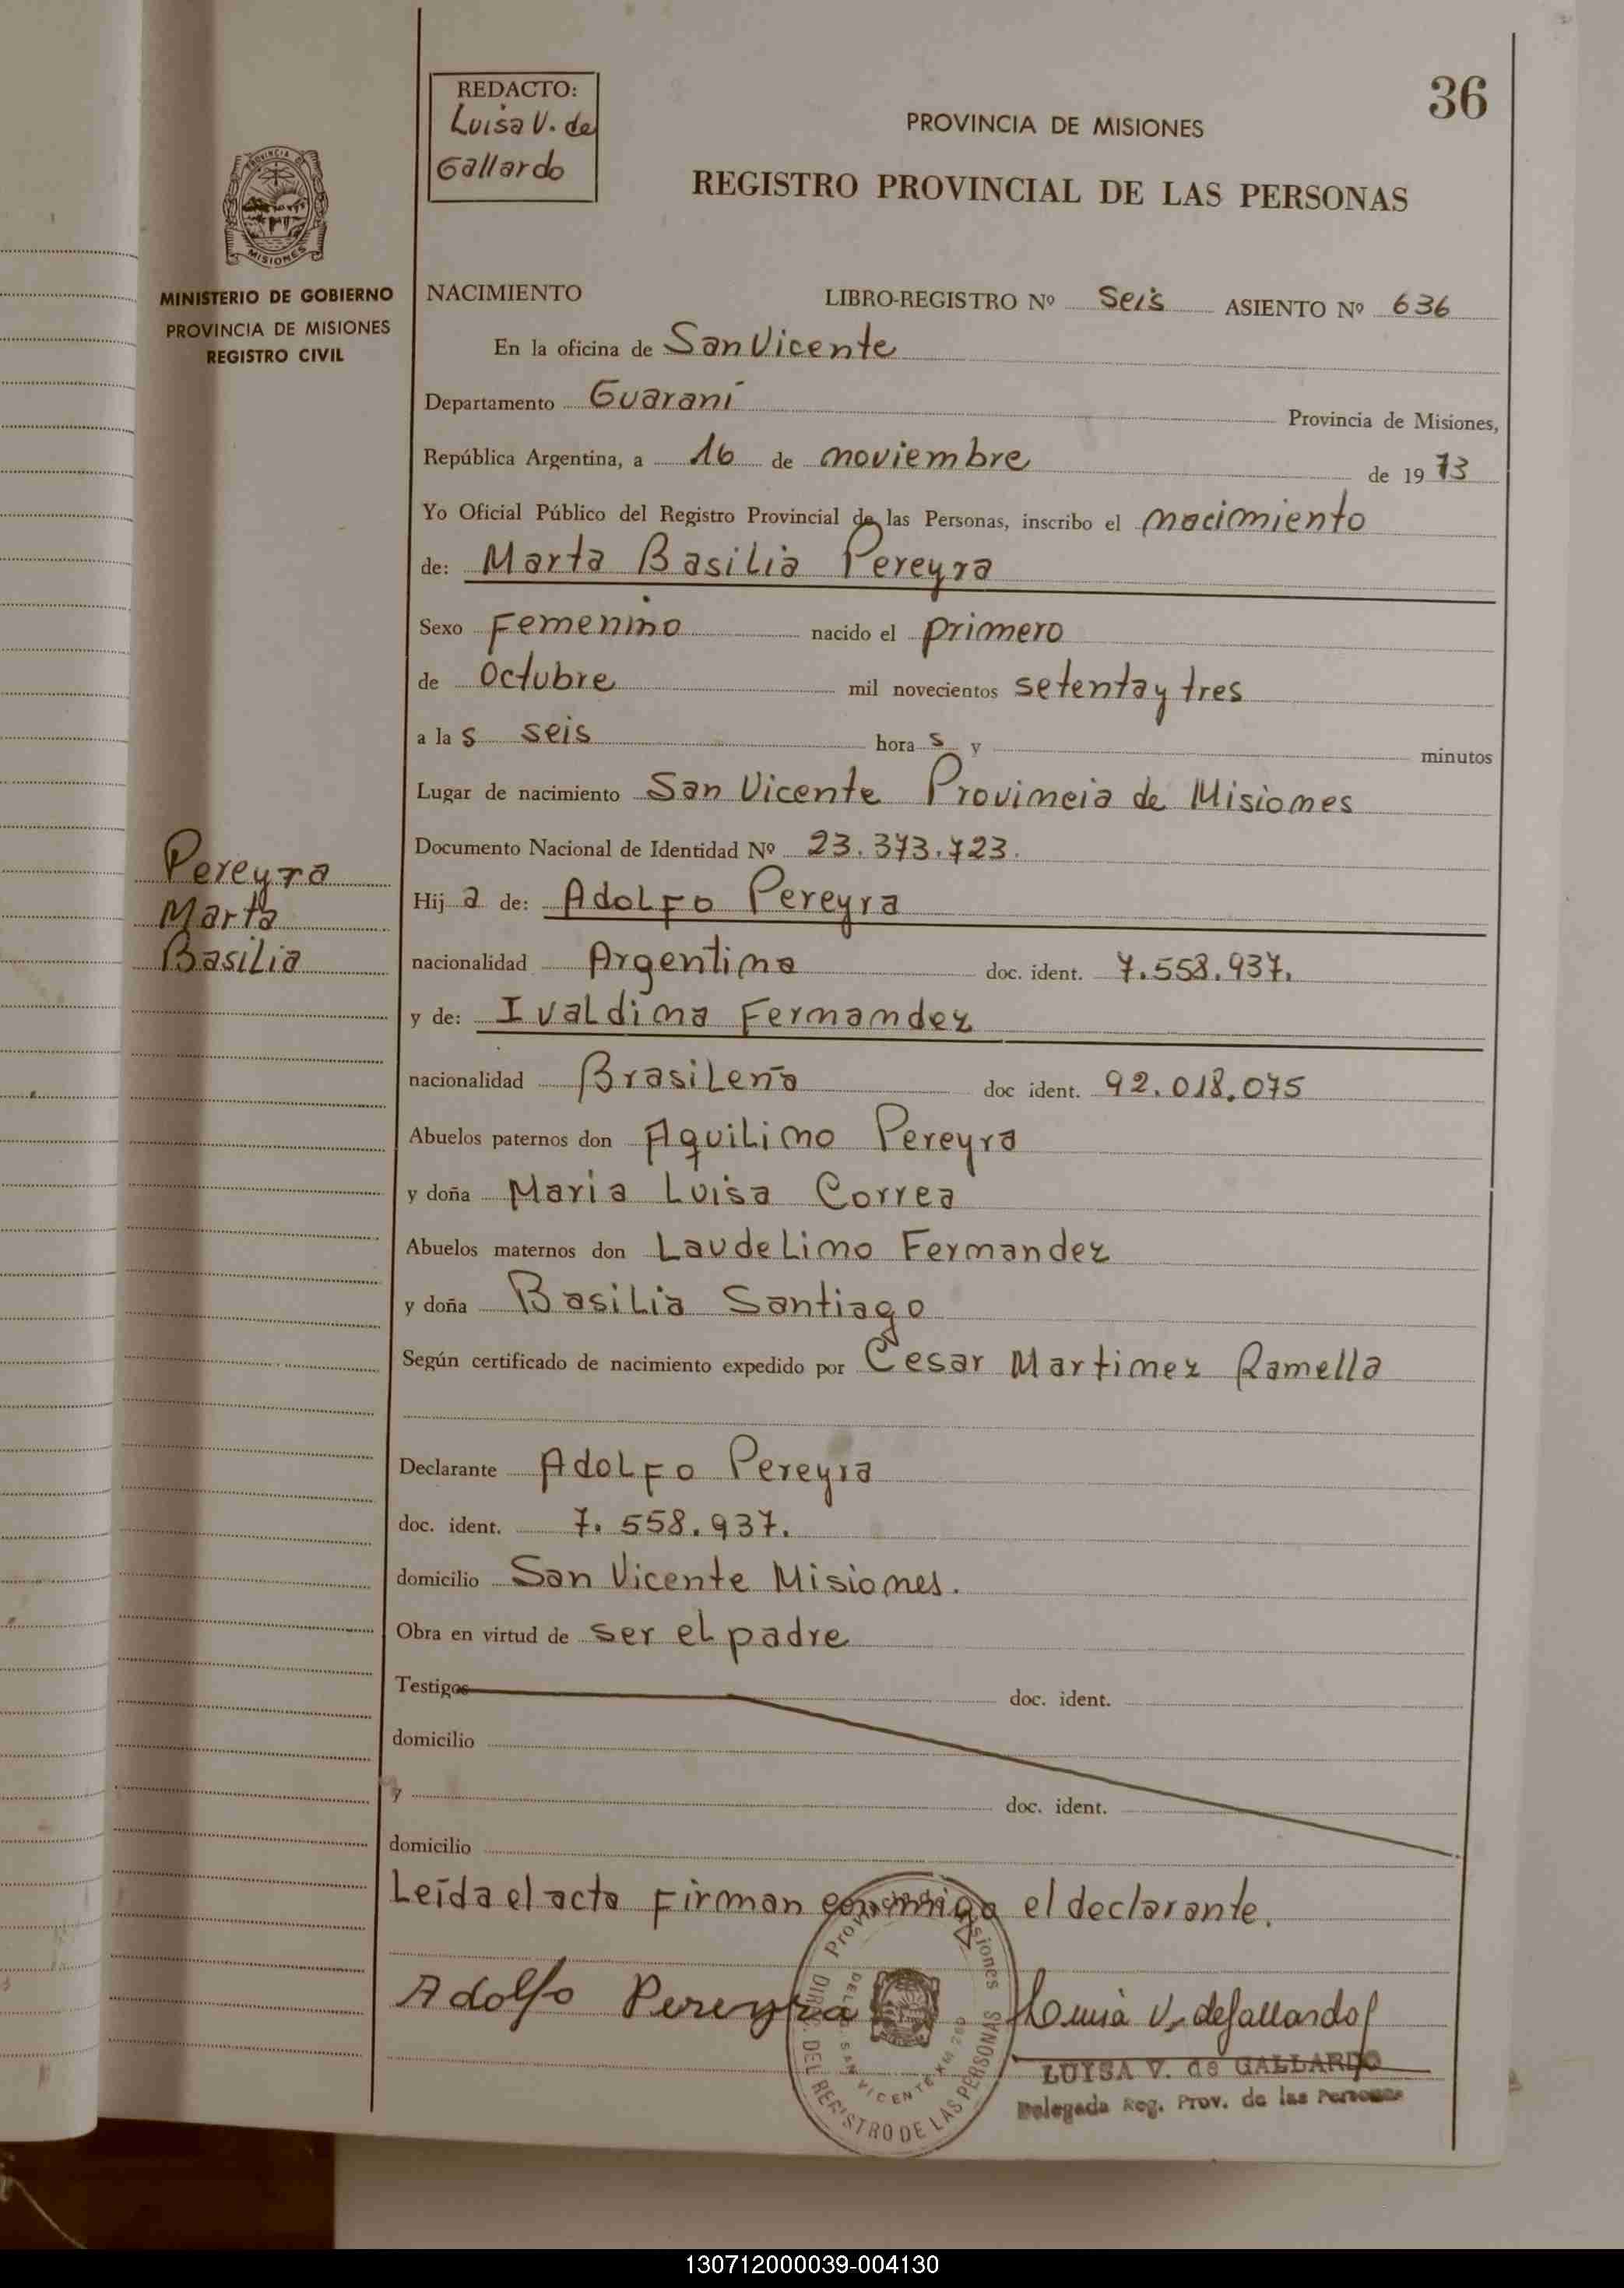 REDACTO:
Luisa V. de
Gallardo
36
PROVINCIA DE MISIONES
REGISTRO PROVINCIAL DE LAS PERSONAS
PROVINCIA DE
MISIONES
MINISTERIO DE GOBIERNO
PROVINCIA DE MISIONES
REGISTRO CIVIL
NACIMIENTO LIBRO-REGISTRO Nº Seis ASIENTO Nº 636
En la oficina de San Vicente
Departamento Guaraní Provincia de Misiones,
República Argentina, a 16 de noviembre de 1973
Yo Oficial Público del Registro Provincial de las Personas, inscribo el nacimiento
de: Marta Basilia Pereyra
Sexo Femenino nacido el primero
de Octubre mil novecientos setenta y tres
a las seis horas y minutos
Lugar de nacimiento San Vicente Provincia de Misiones
Documento Nacional de Identidad Nº 23.373.723.
Pereyra
Marta
Basilia
Hija de: Adolfo Pereyra
nacionalidad Argentina doc. ident. 7.558.937.
y de: Ivaldina Fernandez
nacionalidad Brasileña doc ident. 92.018.075
Abuelos paternos don Aquilino Pereyra
y doña Maria Luisa Correa
Abuelos maternos don Laudelino Fernandez
y doña Basilia Santiago
Según certificado de nacimiento expedido por Cesar Martinez Ramella
Declarante Adolfo Pereyra
doc. ident. 7.558.937.
domicilio San Vicente Misiones.
Obra en virtud de ser el padre
Testigos doc. ident.
domicilio
y doc. ident.
domicilio
Leída el acta firman conmigo el declarante.
Adolfo Pereyra
Luisa V. de Gallardo
LUISA V. de GALLARDO
Delegada Reg. Prov. de las Personas
DIREC. DEL REGISTRO DE LAS PERSONAS
SAN VICENTE KM. 260
130712000039-004130